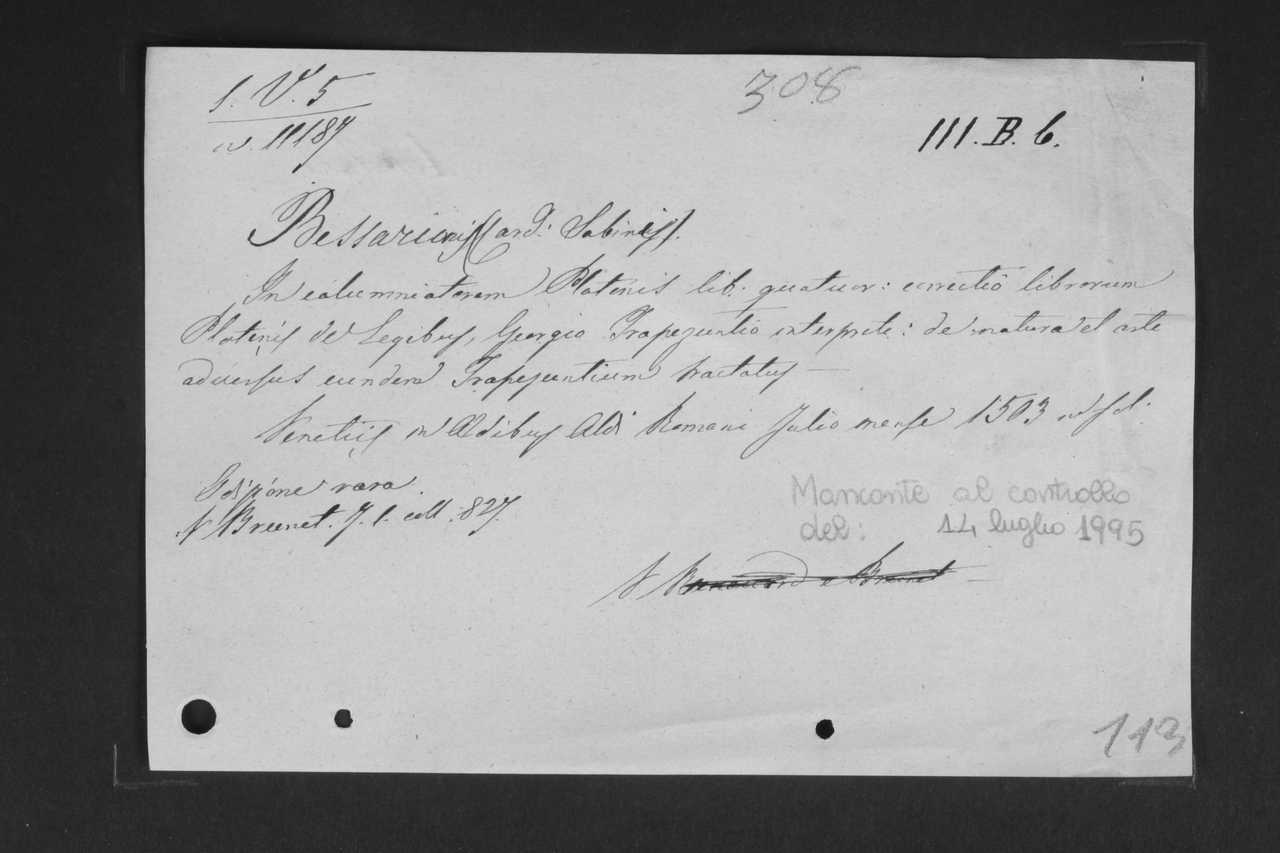 1. V. 5
308
v. 11187
III. B. 6.
Bessarionis (Card: Sabinis).
In calumniatorem Platonis lib: quatuor: correctio librorum
Platonis de Legibus, Georgio Trapezuntio interprete: de natura et arte
adversus eundem Trapezuntium tractatus —
Venetiis in Aedibus Aldi Romani Julio mense 1503 in fol.
Edizione rara.
V Brunet. T. 1. coll. 827.
Mancante al controllo
del: 14 luglio 1995
113